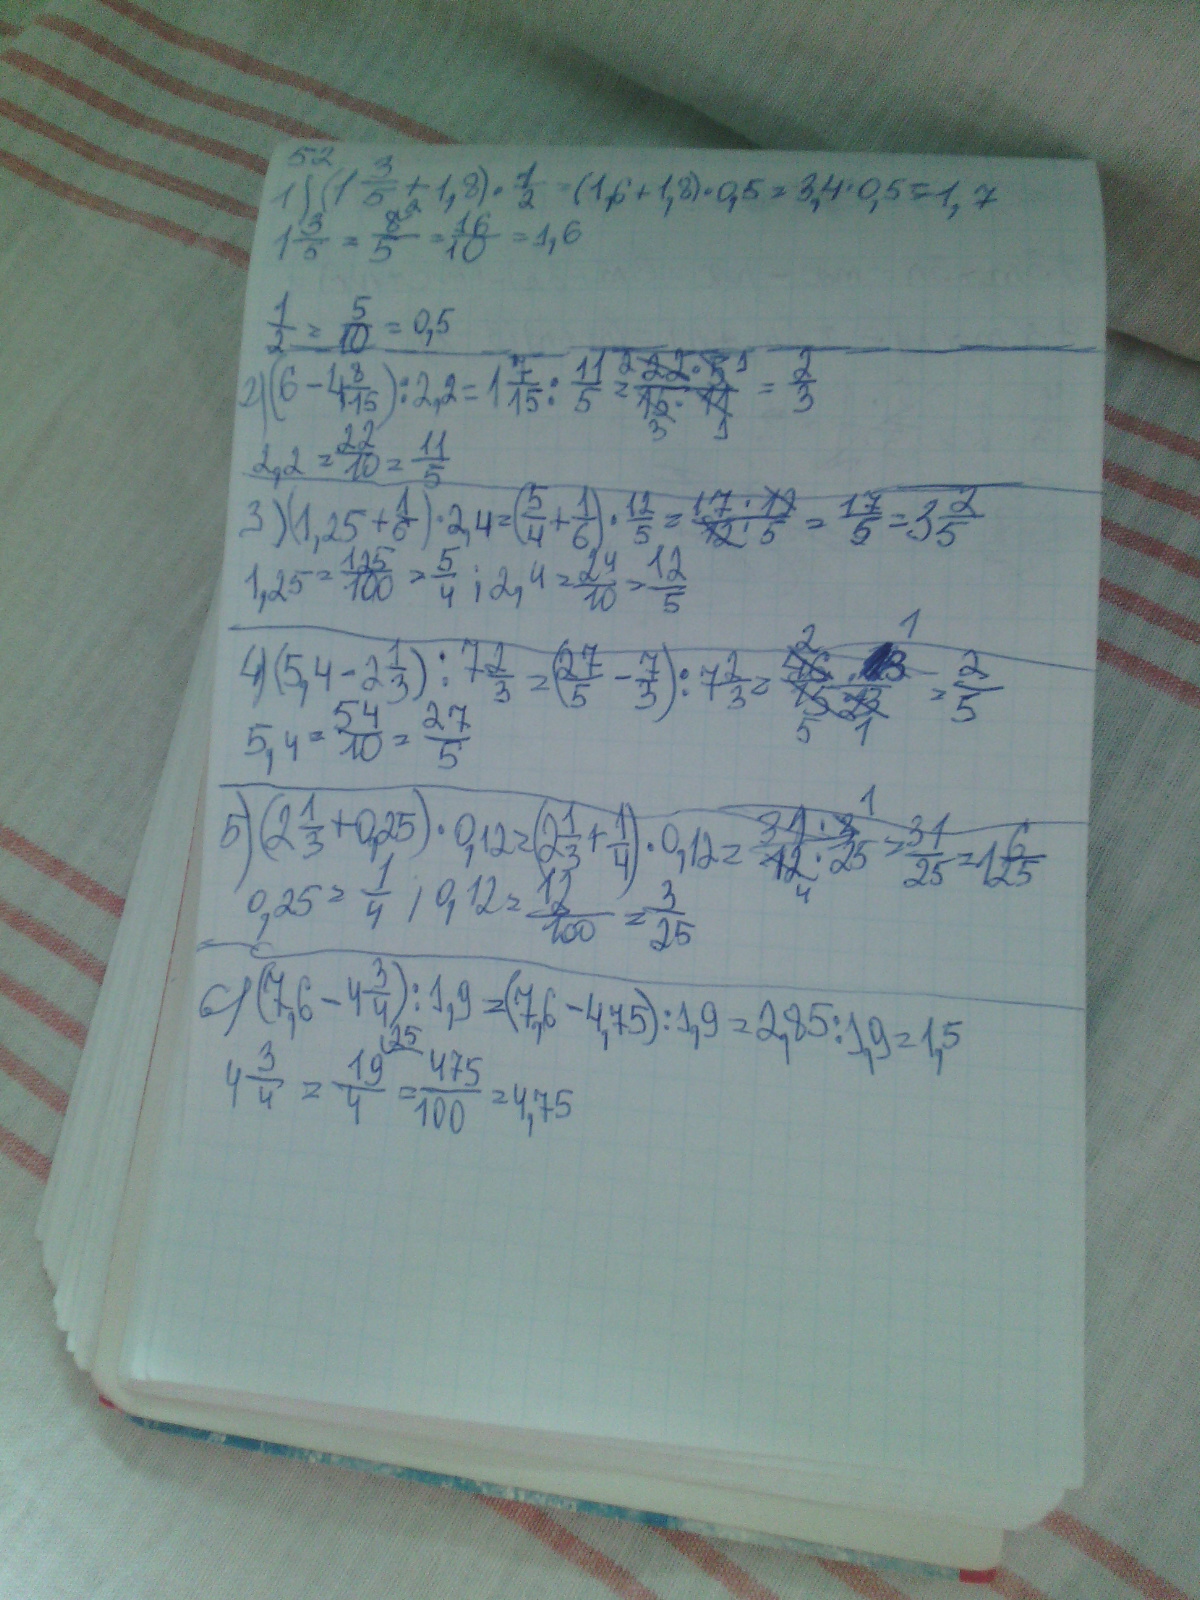 52
1) (1 3/5 + 1,8) · 1/2 = (1,6 + 1,8) · 0,5 = 3,4 · 0,5 = 1,7
1 3/5 = 8/5 ² = 16/10 = 1,6
1/2 = 5/10 = 0,5
2) (6 - 4 8/15) : 2,2 = 1 7/15 : 11/5 = 2 22 · 5 1 / 15 · 11 3 1 = 2/3
2,2 = 22/10 = 11/5
3) (1,25 + 1/6) · 2,4 = (5/4 + 1/6) · 12/5 = 17 · 12 / 12 · 5 = 17/5 = 3 2/5
1,25 = 125/100 = 5/4 ; 2,4 = 24/10 = 12/5
4) (5,4 - 2 1/3) : 7 2/3 = (27/5 - 7/3) : 7 2/3 = 2 1 46 · 3 / 15 · 23 5 1 = 2/5
5,4 = 54/10 = 27/5
5) (2 1/3 + 0,25) · 0,12 = (2 1/3 + 1/4) · 0,12 = 31 · 3 1 / 12 · 25 4 = 31/25 = 1 6/25
0,25 = 1/4 ; 0,12 = 12/100 = 3/25
6) (7,6 - 4 3/4) : 1,9 = (7,6 - 4,75) : 1,9 = 2,85 : 1,9 = 1,5
4 3/4 = 19/4 (25 = 475/100 = 4,75